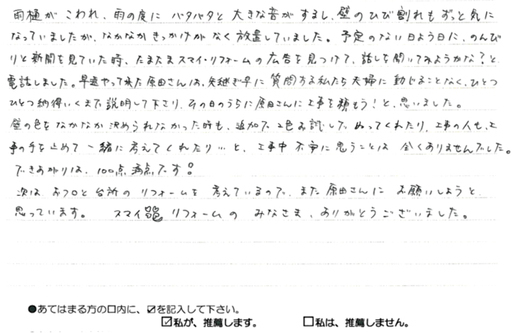 雨樋がこわれ、雨の度にバタバタと大きな音がするし、壁のひび割れもずっと気に
なっていましたが、なかなかきっかけがなく放置していました。予定のない日よう日に、のんび
りと新聞を見ていた時、たまたまスマイ・リフォームの広告を見つけて、話しを聞いてみようかな?と
電話しました。早速やって来た原田さんは、矢継ぎ早に質問する私たち夫婦に動じることなく、ひとつ
ひとつ納得いくまで説明して下さり、その日のうちに原田さんに工事を頼もう!と、思いました。
壁の色をなかなか決められなかった時も、追加で2色お試しでぬってくれたり、工事の人も、工
事の手を止めて一緒に考えてくれたり…と、工事中不安に思うことは全くありませんでした。
できあがりは、100点満点です。
次は、おフロと台所のリフォームを考えているので、また原田さんにお願いしようと
思っています。 スマイリフォームのみなさま、ありがとうございました。
●あてはまる方の口内に、☑を記入して下さい。
☑私が、推薦します。 □私は、推薦しません。